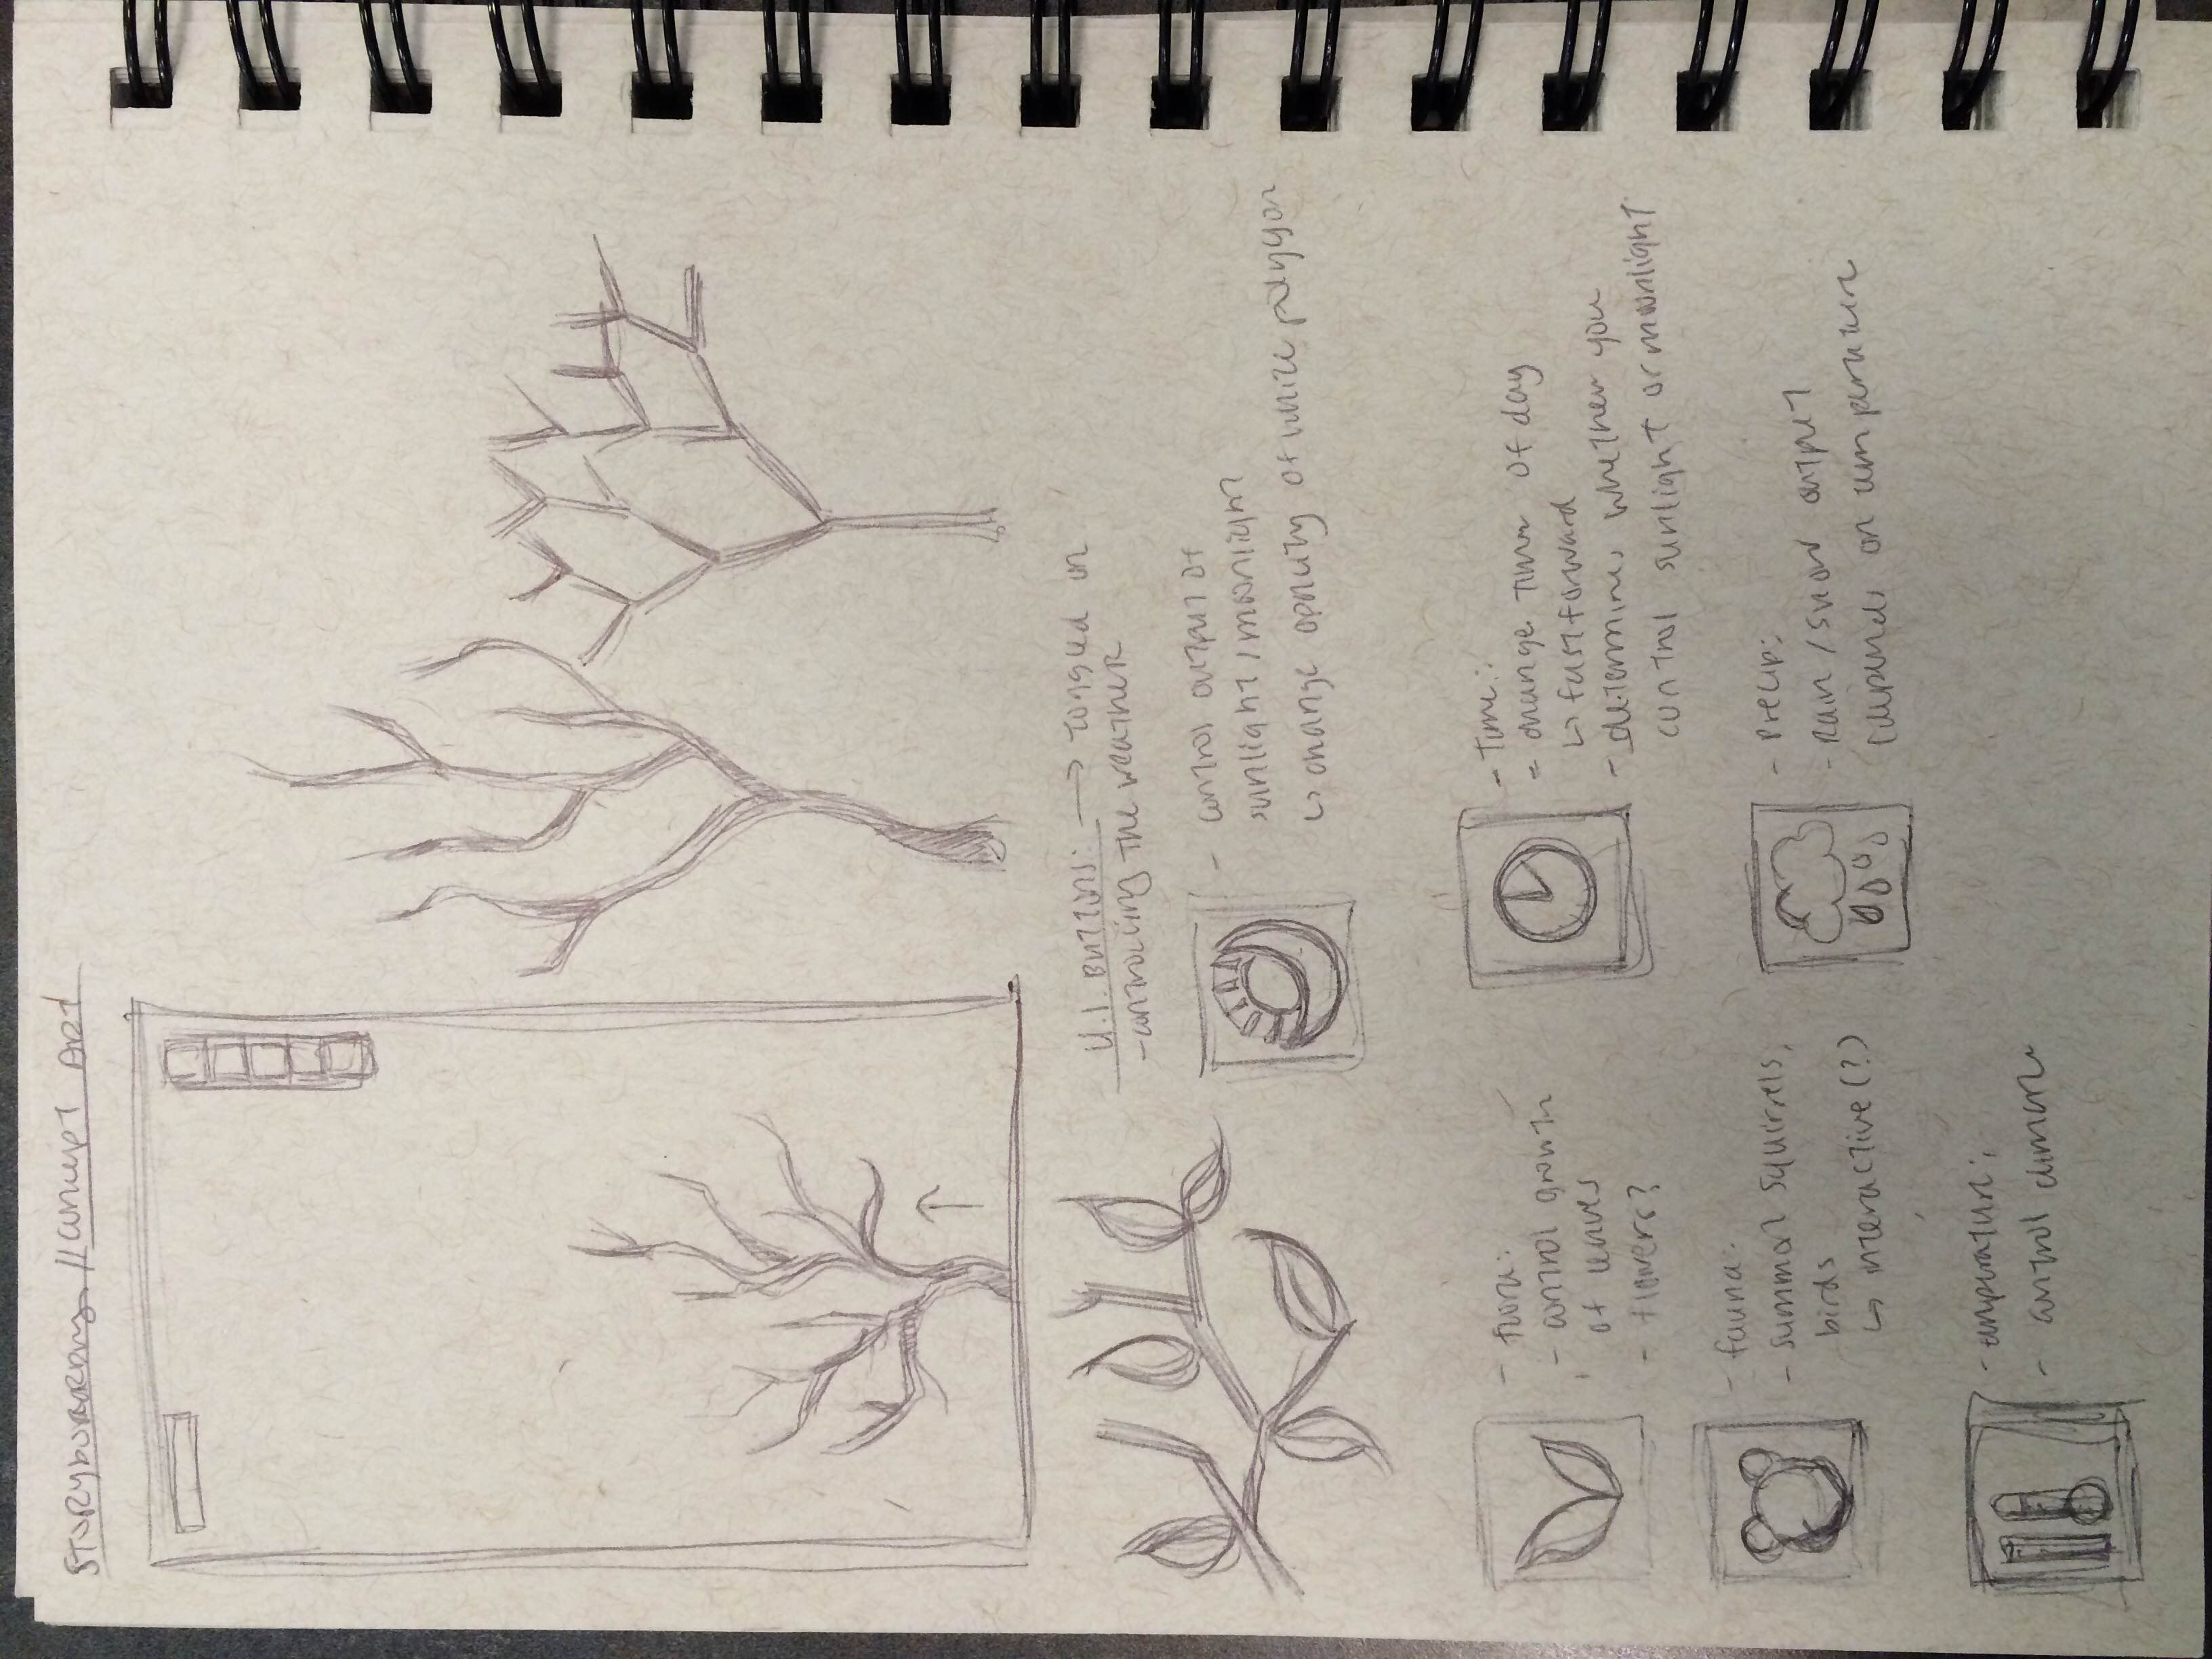 STORYBOARDING // CONCEPT ART
U.I. BUTTONS: → toggled on
- controlling the weather
- control output of
sunlight / moonlight
↳ change opacity of white polygon
- flora:
- control growth
of leaves
- flowers?
- Time:
- change time of day
↳ fastforward
- determines whether you
control sunlight or moonlight
- fauna:
- summon squirrels,
birds
↳ interactive (?)
- Precip:
- Rain / snow output
depends on temperature
- temperature:
- control climate